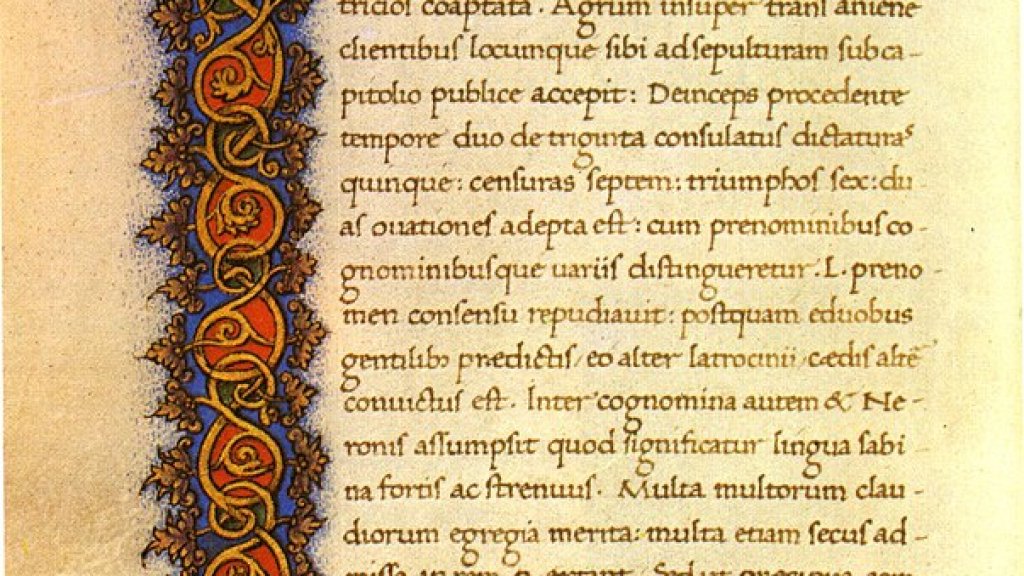 tricios coaptata. Agrum insuper trans aniene
clientibus locumque sibi ad sepulturam sub ca-
pitolio publice accepit: Deinceps procedente
tempore duo de triginta consulatus dictaturas
quinque: censuras septem: triumphos sex: du-
as ouationes adepta est: cum prenominibus co-
gnominibusque uariis distingueretur. L. preno-
men consensu repudiauit: postquam e duobus
gentilib; predictis, eo alter latrocinii, cædis alte͂
conuictus est. Inter cognomina autem & Ne-
ronis assumpsit quod significatur lingua sabi-
na fortis ac strenuus. Multa multorum clau-
diorum egregia merita: multa etiam secus ad-